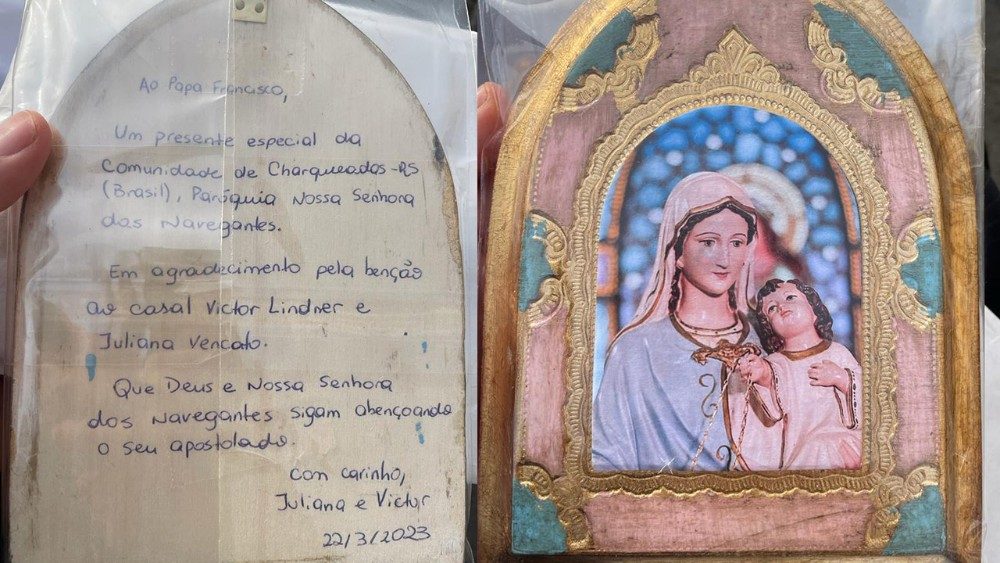 Ao Papa Francisco,
Um presente especial da
Comunidade de Charqueados-RS
(Brasil), Paróquia Nossa Senhora
dos Navegantes.
Em agradecimento pela benção
ao casal Victor Lindner e
Juliana Vencato.
Que Deus e Nossa Senhora
dos Navegantes sigam abençoando
o seu apostolado.
Con carinho,
Juliana e Victor
22/3/2023